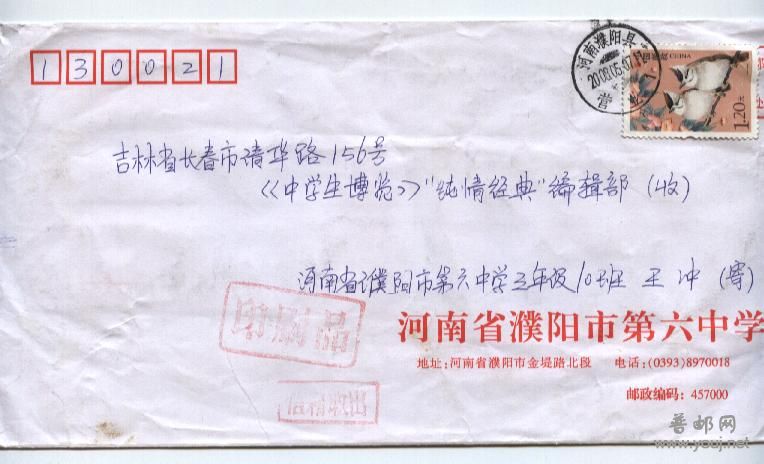 130021
河南濮阳县
2008.05.07
营
中国邮政 CHINA
1.20元
吉林省长春市清华路156号
《中学生博览》"纯情经典"编辑部（收）
河南省濮阳市第六中学三年级10班 王冲（寄）
印刷品
河南省濮阳市第六中学
地址:河南省濮阳市金堤路北段 电话:(0393)8970018
邮政编码: 457000
普邮网
www.youj.net